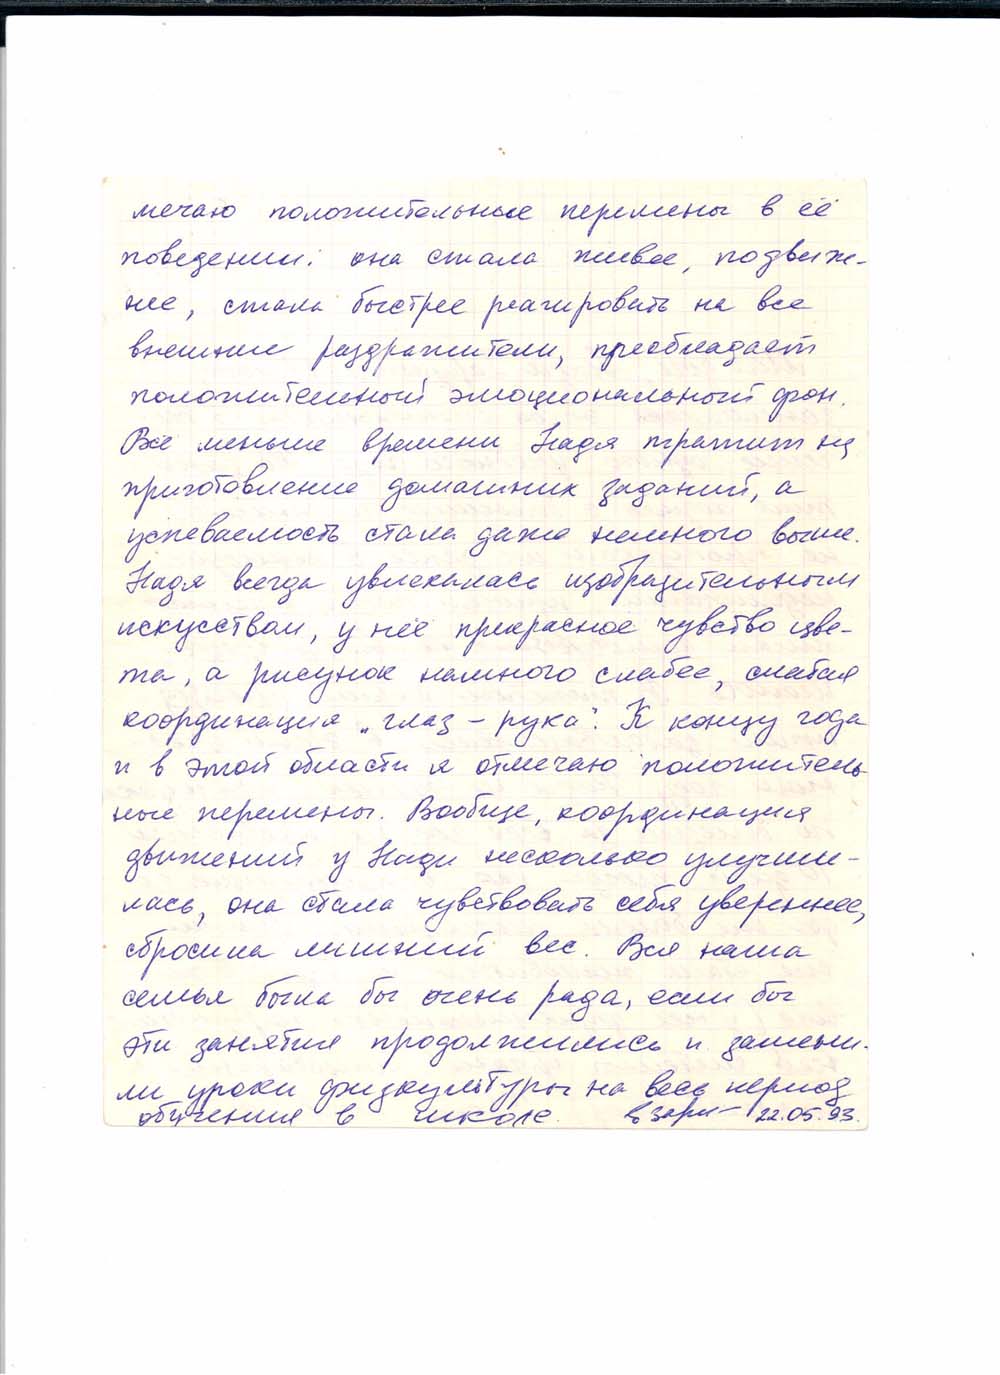 мечаю положительные перемены в её
поведении: она стала живее, подвиж-
нее, стала быстрее реагировать на все
внешние раздражители, преобладает
положительный эмоциональный фон.
Все меньше времени Надя тратит на
приготовление домашних заданий, а
успеваемость стала даже немного выше.
Надя всегда увлекалась изобразительным
искусством, у неё прекрасное чувство цве-
та, а рисунок намного слабее, слабая
координация „глаз – рука". К концу года
и в этой области я отмечаю положитель-
ные перемены. Вообще, координация
движений у Нади несколько улучши-
лась, она стала чувствовать себя увереннее,
сбросила лишний вес. Вся наша
семья была бы очень рада, если бы
эти занятия продолжились и замени-
ли уроки физкультуры на весь период
обучения в школе. 22.05.93.